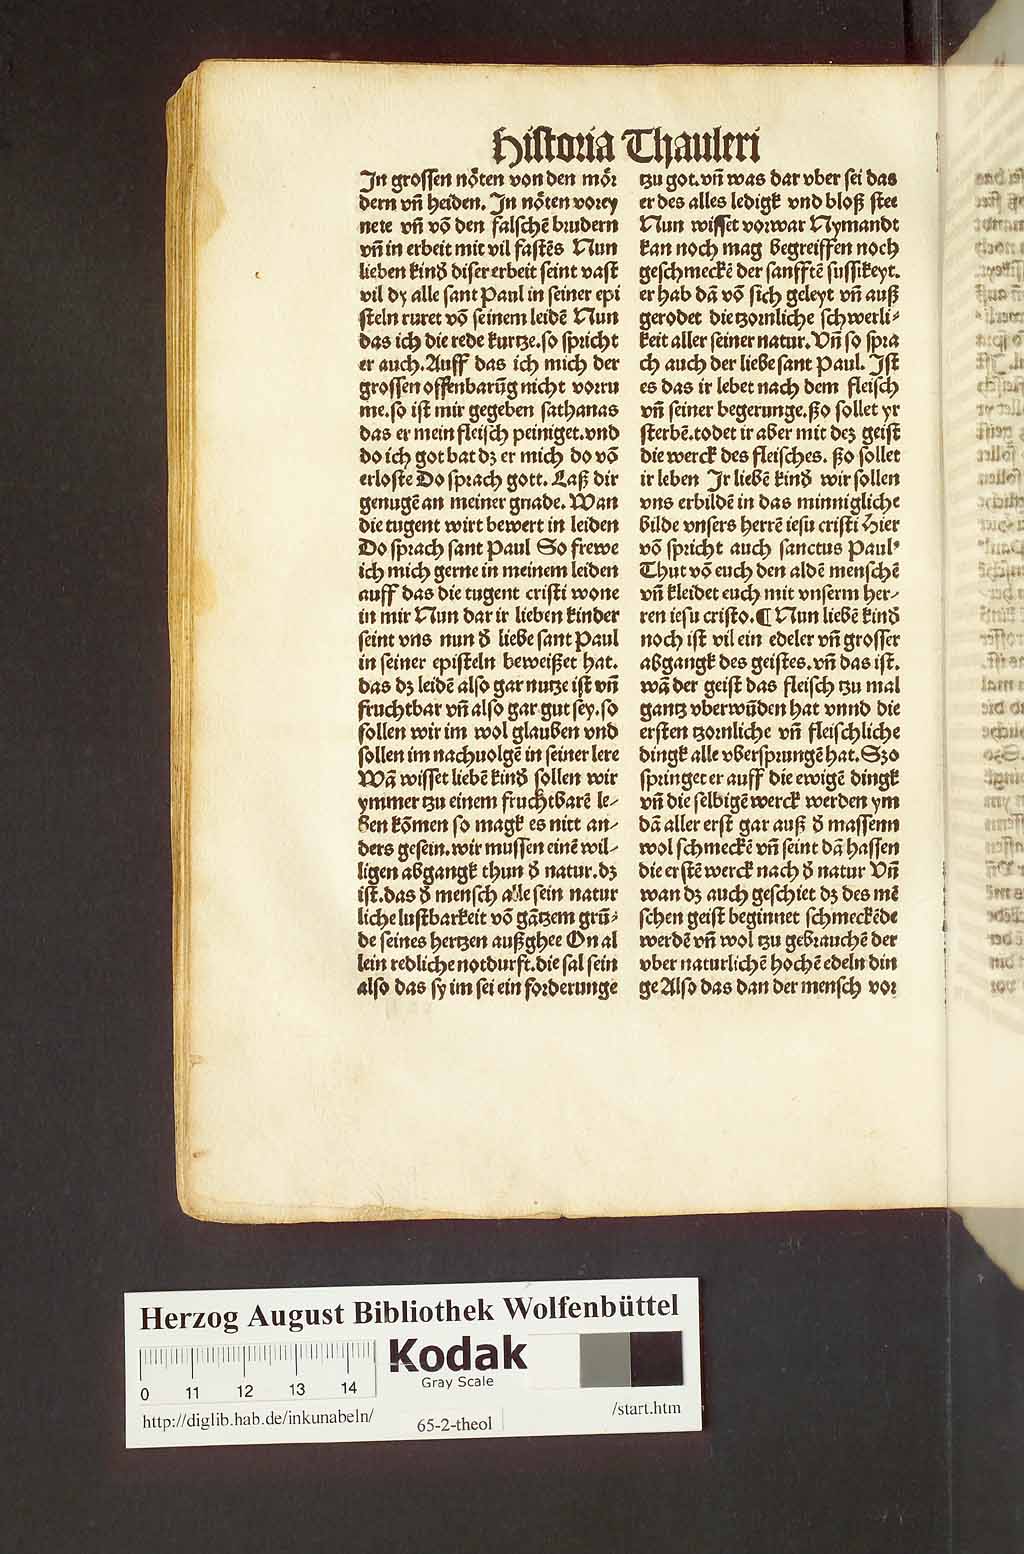 Historia Thauleri
In grossen nöten von den mör
dern vñ heiden. In nöten vorey
nete vñ võ den falschē brudern
vñ in erbeit mit vil fastēs Nun
lieben kinď diser erbeit seint vast
vil dy alle sant Paul in seiner epi
steln ruret võ seinem leidē Nun
das ich die rede kurtze. so spricht
er auch. Auff das ich mich der
grossen offenbarũg nicht vorru
me. so ist mir gegeben sathanas
das er mein fleisch peiniget. vnd
do ich got bat dz er mich do võ
erloste Do sprach gott. Laß dir
genugē an meiner gnade. Wan
die tugent wirt bewert in leiden
Do sprach sant Paul So frewe
ich mich gerne in meinem leiden
auff das die tugent cristi wone
in mir Nun dar ir lieben kinder
seint vns nun ď liebe sant Paul
in seiner episteln beweißet hat.
das dz leidē also gar nutze ist vñ
fruchtbar vñ also gar gut sey. so
sollen wir im wol glauben vnd
sollen im nachuolgē in seiner lere
Wã wisset liebē kinď sollen wir
ymmer tzu einem fruchtbarē le-
ben kõmen so magk es nitt an-
ders gesein. wir mussen einē wil-
ligen abgangk thun ď natur. dz
ist. das ď mensch alle sein natur
liche lustbarkeit võ gãtzem grũ-
de seines hertzen außghee On al
lein redliche notdurft. die sal sein
also das sy im sei ein forderunge
tzu got. vñ was dar vber sei das
er des alles ledigk vnd bloß stee
Nun wisset vorwar Nymandt
kan noch mag begreiffen noch
geschmeckē der sanfftē sussikeyt.
er hab dã võ sich geleyt vñ auß
gerodet die tzornliche schwerli-
keit aller seiner natur. Vñ so spra
ch auch der liebe sant Paul. Ist
es das ir lebet nach dem fleisch
vñ seiner begerunge. ßo sollet yr
sterbē. todet ir aber mit dez geist
die werck des fleisches. ßo sollet
ir leben Ir liebē kinď wir sollen
vns erbildē in das minnigliche
bilde vnsers herrē iesu cristi Hier
võ spricht auch sanctus Paulꝰ
Thut võ euch den aldē menschē
vñ kleidet euch mit vnserm her-
ren iesu cristo. ¶ Nun liebē kinď
noch ist vil ein edeler vñ grosser
abgangk des geistes. vñ das ist.
wã der geist das fleisch tzu mal
gantz vberwũden hat vnnd die
ersten tzornliche vñ fleischliche
dingk alle vbersprungē hat. Szo
springet er auff die ewigē dingk
vñ die selbigē werck werden ym
dã aller erst gar auß ď massenn
wol schmeckē vñ seint dã hassen
die erstē werck nach ď natur Vñ
wan dz auch geschiet dz des mē
schen geist beginnet schmeckēde
werdē vñ wol tzu gebrauchē der
vber naturlichē hochē edeln din
ge Also das dan der mensch vor
Herzog August Bibliothek Wolfenbüttel
Kodak
Gray Scale
0 11 12 13 14
http://diglib.hab.de/inkunabeln/
65-2-theol
/start.htm